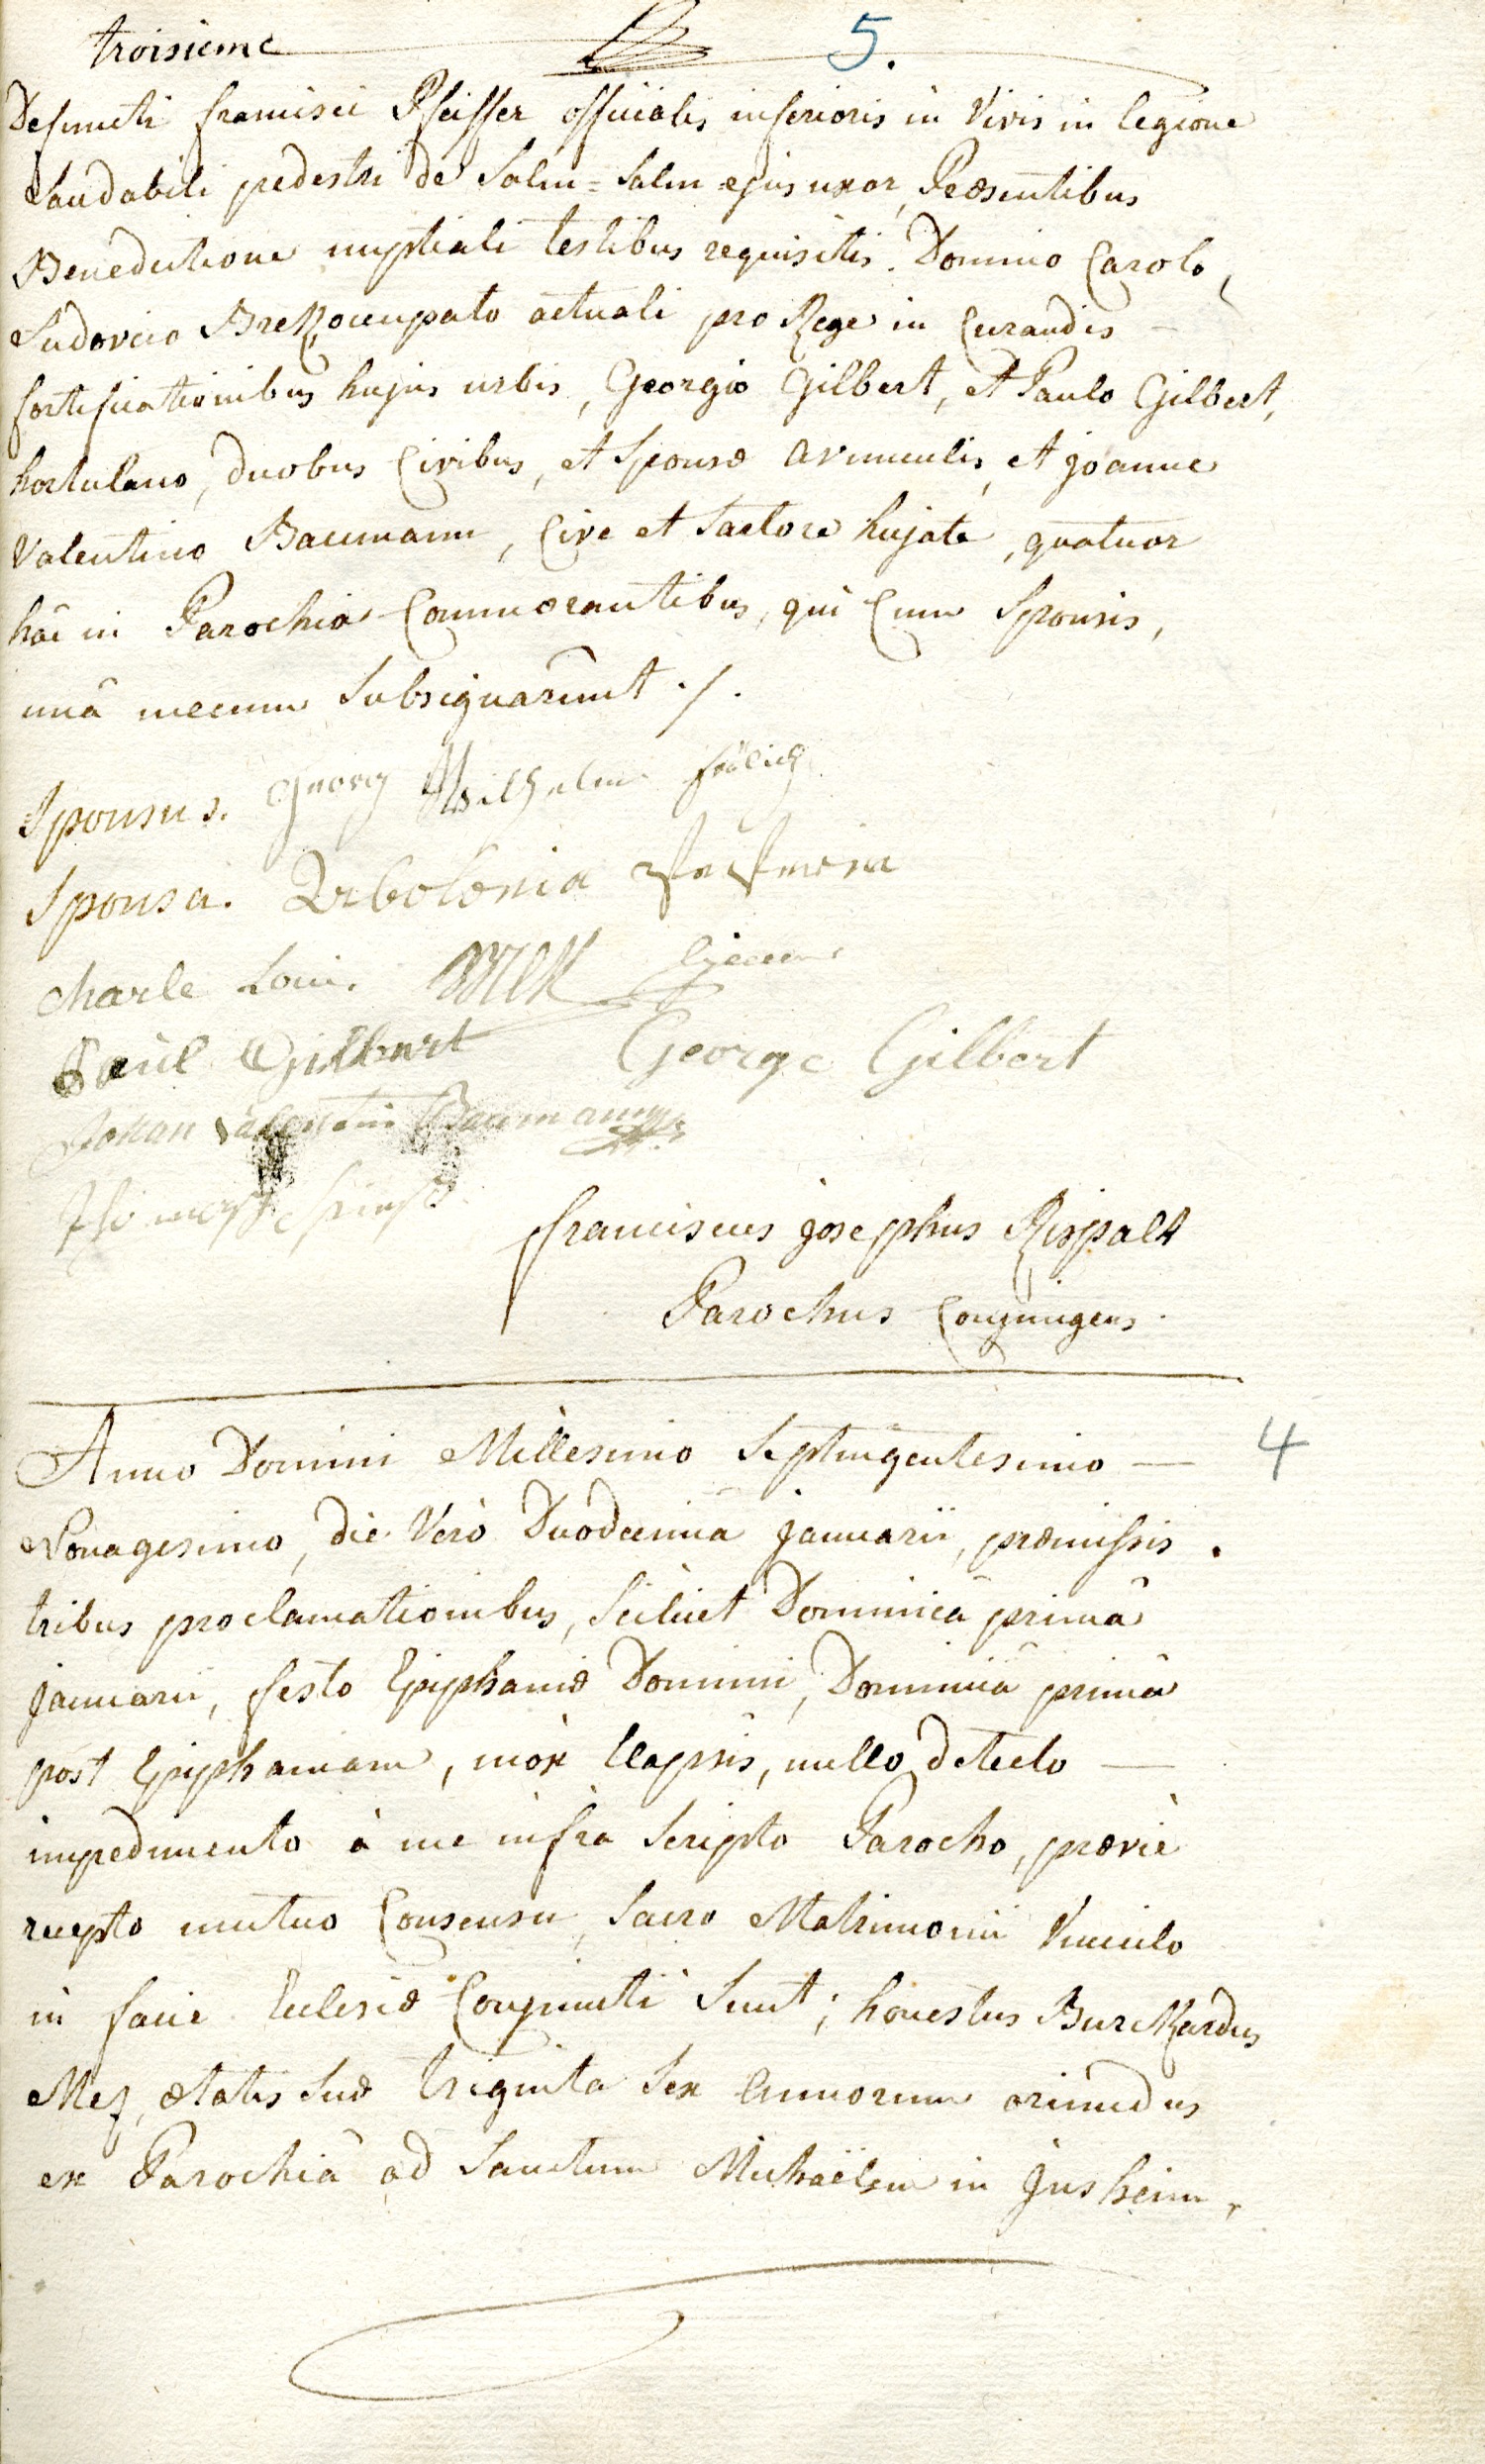 troisieme 5.
Defuncti francisci Pfeiffer officialis inferioris in Vivis in legione
Laudabili pedestri de Salm=Salm ejus uxor, Præsentibus
Benedictione nuptiali testibus requisitis. Domino Carolo,
Ludovico occupato actuali pro Rege in Curandis —
fortificationibus hujus urbis, Georgio Gilbert, et Paulo Gilbert,
hortulano, duobus Civibus, et Sponsæ avunculis, et joanne
Valentino Baumann, Cive et Sartore hujate, quatuor
hâc in Parochia Commorantibus, qui Cum Sponsis,
unâ mecum Subsignarunt ./.
Sponsus. Georg Wilhelm frölich
Sponsa.
charle Loui.
Paul Gilbert George Gilbert
Johan valentin Baumann
franciscus josephus Rispalt
Parochus Conjungens.
Anno Domini Millesimo Septingentesimo — 4
Nonagesimo, die Verò Duodecima januarii, præmissis .
tribus proclamationibus, Scilicet Dominicâ primâ
januarii, festo Epiphaniæ Domini, Dominicâ primâ
post Epiphaniam, mòx Elapsis, nullo detecto —
impedimento à me infra Scripto Parocho, præviè
recepto mutuo Consensu, Sacro Matrimonii Vinculo
in facie Ecclesiæ Conjuncti Sunt; honestus Burckardus
Mez, ætatis Suæ triginta Sex annorum oriundus
ex Parochiâ ad Sanctum Michaëlem in jnsheim,